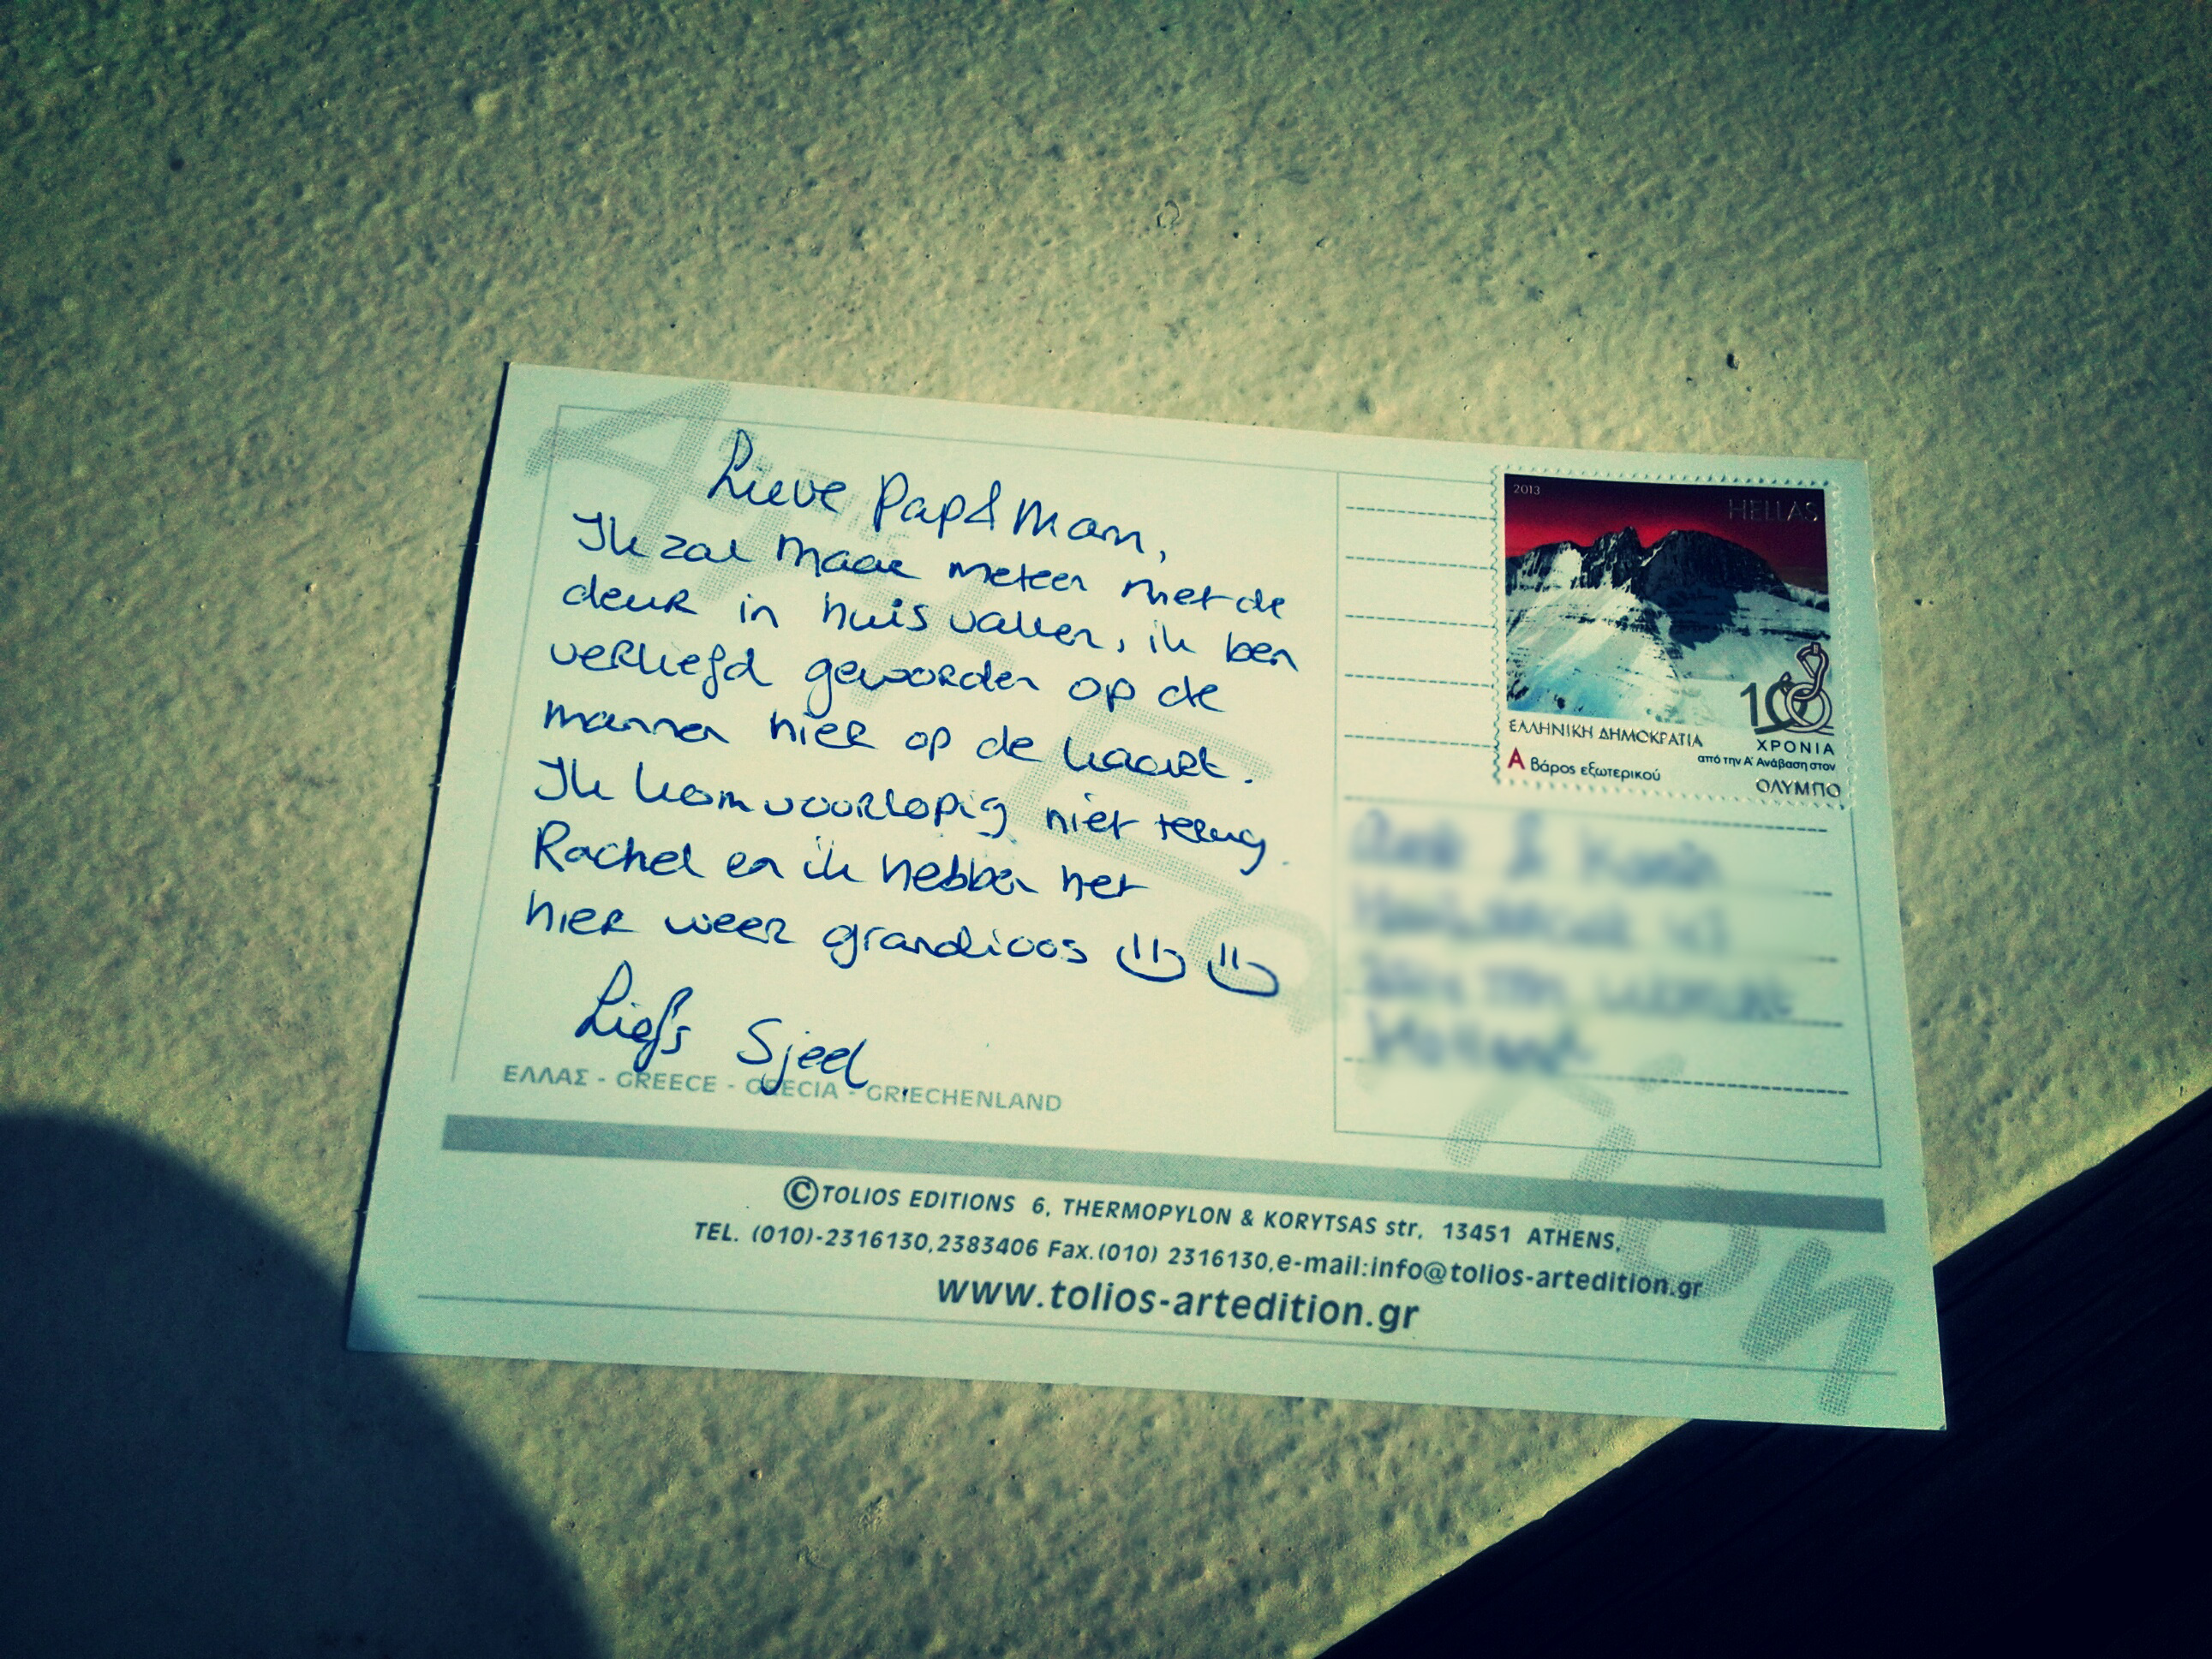 Lieve Pap & Mam,
Ik zal maar meteen met de
deur in huis vallen, ik ben
verliefd geworden op de
mannen hier op de kaart.
Ik kom voorlopig niet terug.
Rachel en ik hebben het
hier weer grandioos
Liefs Sjeel.
ΕΛΛΑΣ - GREECE - GRECIA - GRIECHENLAND
2013
HELLAS
100
ΕΛΛΗΝΙΚΗ ΔΗΜΟΚΡΑΤΙΑ
ΧΡΟΝΙΑ
από την Α' Ανάβαση στον
Α Βάρος εξωτερικού
ΟΛΥΜΠΟ
Art Edition
©TOLIOS EDITIONS 6, THERMOPYLON & KORYTSAS str, 13451 ATHENS,
TEL. (010)-2316130,2383406 Fax.(010) 2316130,e-mail:info@tolios-artedition.gr
www.tolios-artedition.gr